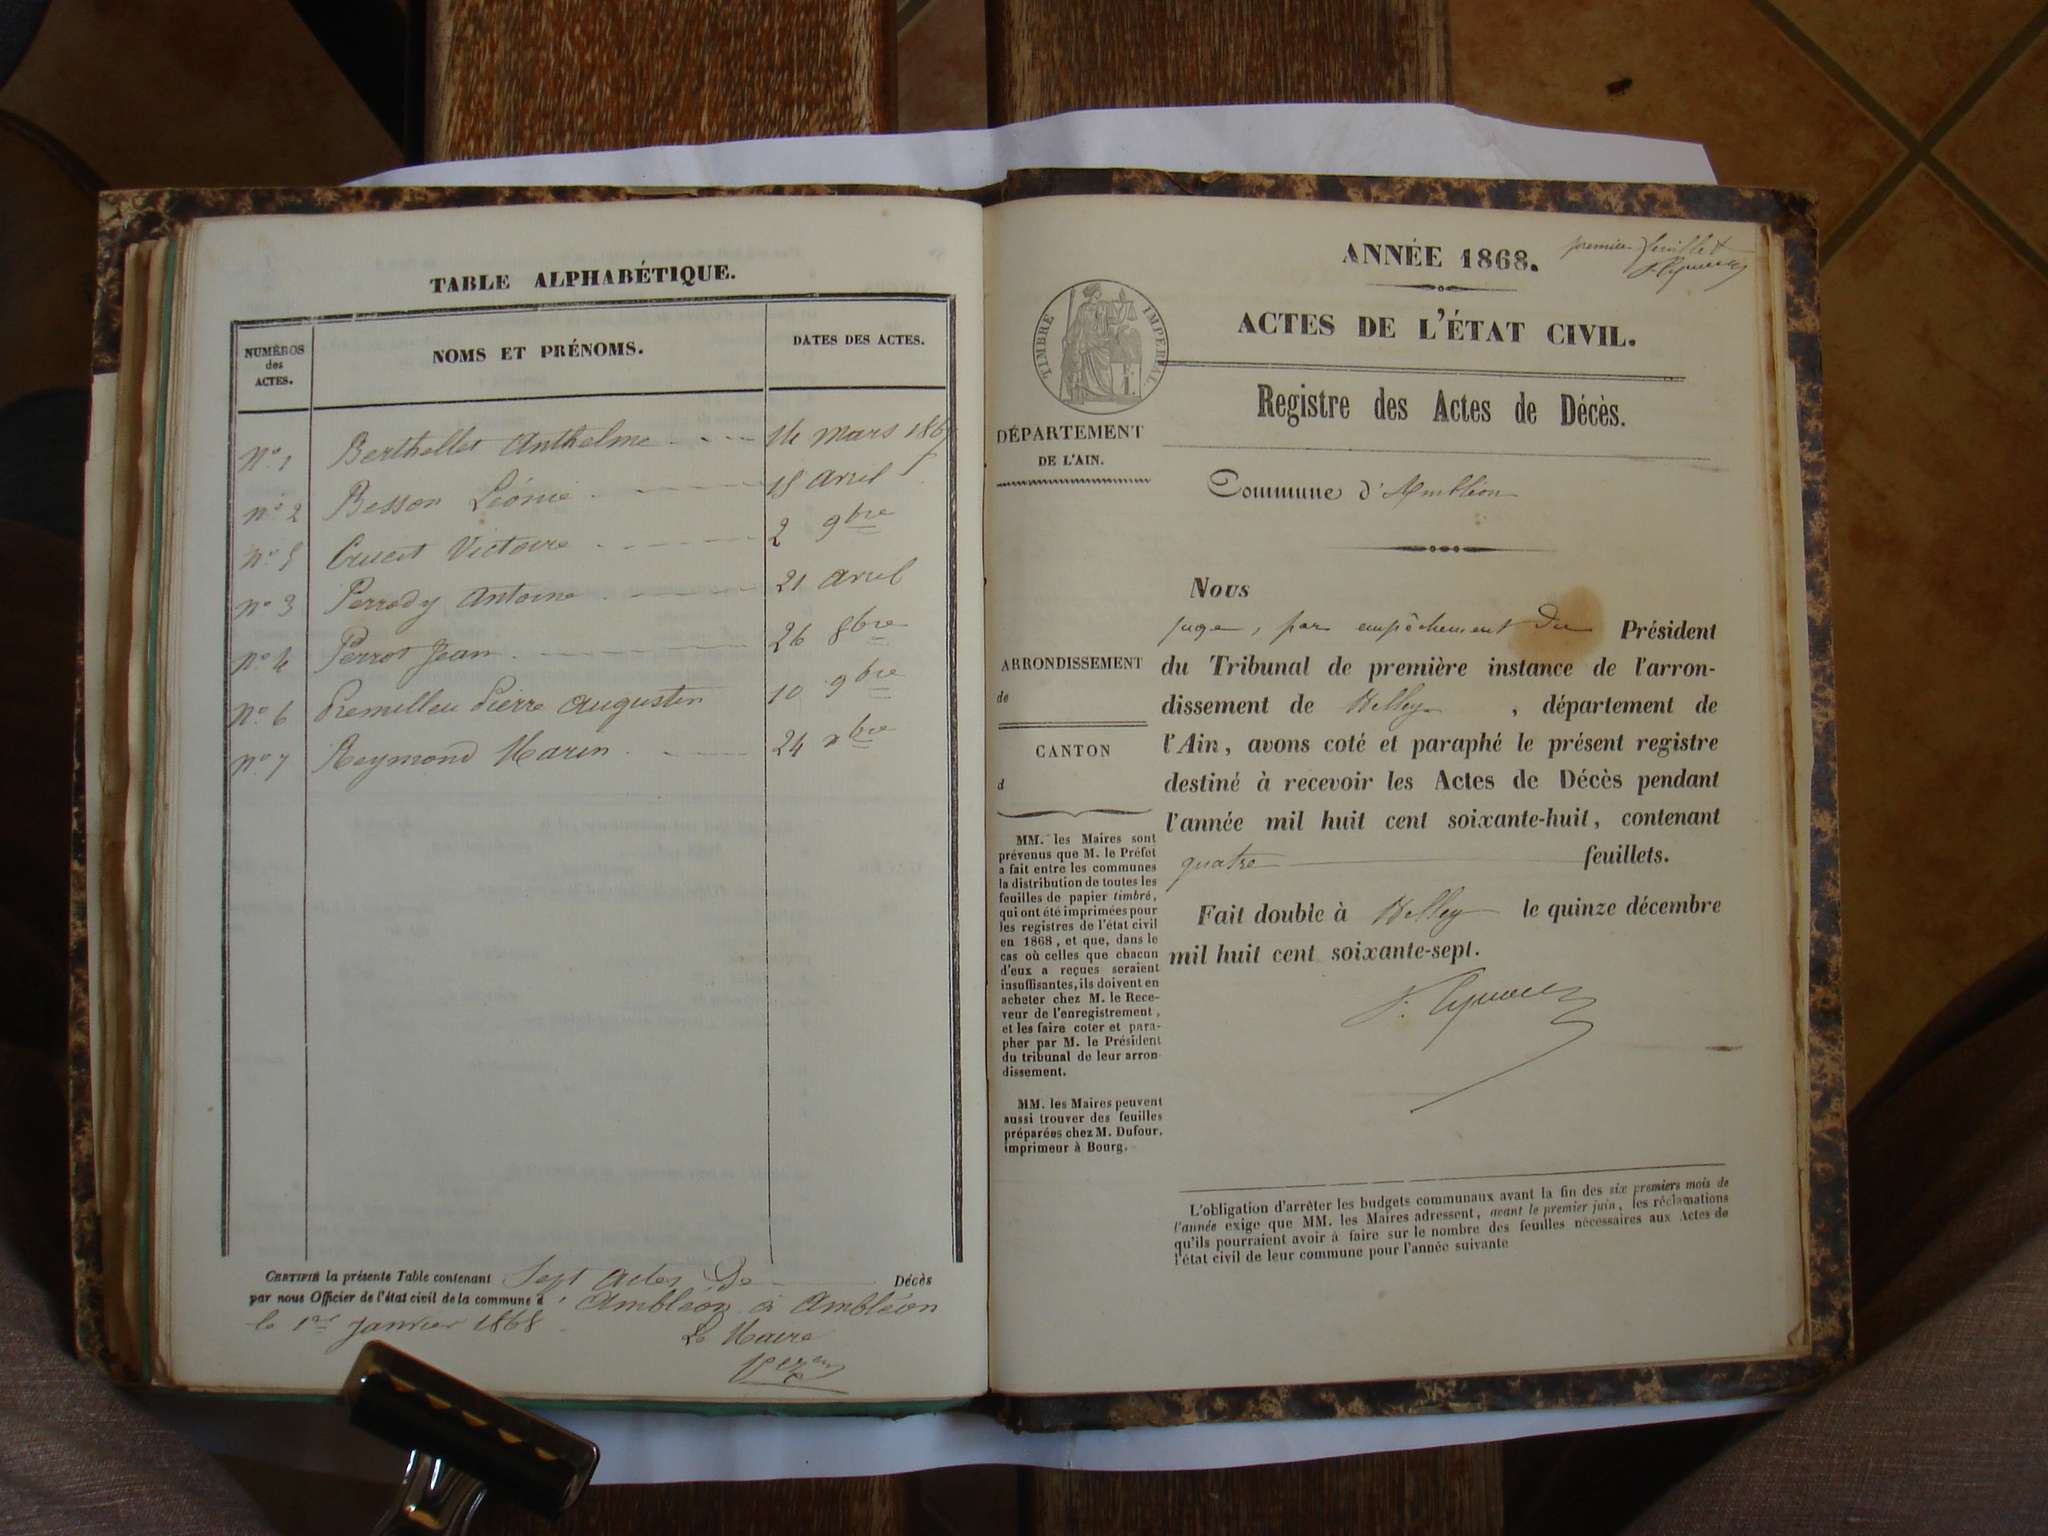 TABLE ALPHABÉTIQUE.
NUMÉROS
des
ACTES.
NOMS ET PRÉNOMS.
DATES DES ACTES.
No. 1 Berthellet Anthelme 14 mars 1867
No. 2 Besson Léonie 15 avril
No. 5 Victoire 2 9bre
No. 3 Perrody Antoine 21 avril
No. 4 Perrot Jean 26 8bre
No. 6 Premilleu Pierre Augustin 10 9bre
No. 7 Reymond Marin 24 xbre
CERTIFIÉ la présente Table contenant Sept actes De Décès
par nous Officier de l'état civil de la commune d'Ambléon à Ambléon
le 1er Janvier 1868
Le Maire
premier feuillet
ANNÉE 1868.
ACTES DE L'ÉTAT CIVIL.
TIMBRE IMPÉRIAL.
Registre des Actes de Décès.
DÉPARTEMENT
DE L'AIN.
Commune d'Ambléon
Nous
juge, par empêchement du Président
du Tribunal de première instance de l'arron-
dissement de Belley, département de
l'Ain, avons coté et paraphé le présent registre
destiné à recevoir les Actes de Décès pendant
l'année mil huit cent soixante-huit, contenant
quatre feuillets.
Fait double à Belley le quinze décembre
mil huit cent soixante-sept.
ARRONDISSEMENT
de
CANTON
d
MM. les Maires sont
prévenus que M. le Préfet
a fait entre les communes
la distribution de toutes les
feuilles de papier timbré,
qui ont été imprimées pour
les registres de l'état civil
en 1868, et que, dans le
cas où celles que chacun
d'eux a reçues seraient
insuffisantes, ils doivent en
acheter chez M. le Rece-
veur de l'enregistrement,
et les faire coter et para-
pher par M. le Président
du tribunal de leur arron-
dissement.
MM. les Maires peuvent
aussi trouver des feuilles
préparées chez M. Dufour,
imprimeur à Bourg.
L'obligation d'arrêter les budgets communaux avant la fin des six premiers mois de
l'année exige que MM. les Maires adressent, avant le premier juin, les réclamations
qu'ils pourraient avoir à faire sur le nombre des feuilles nécessaires aux Actes de
l'état civil de leur commune pour l'année suivante